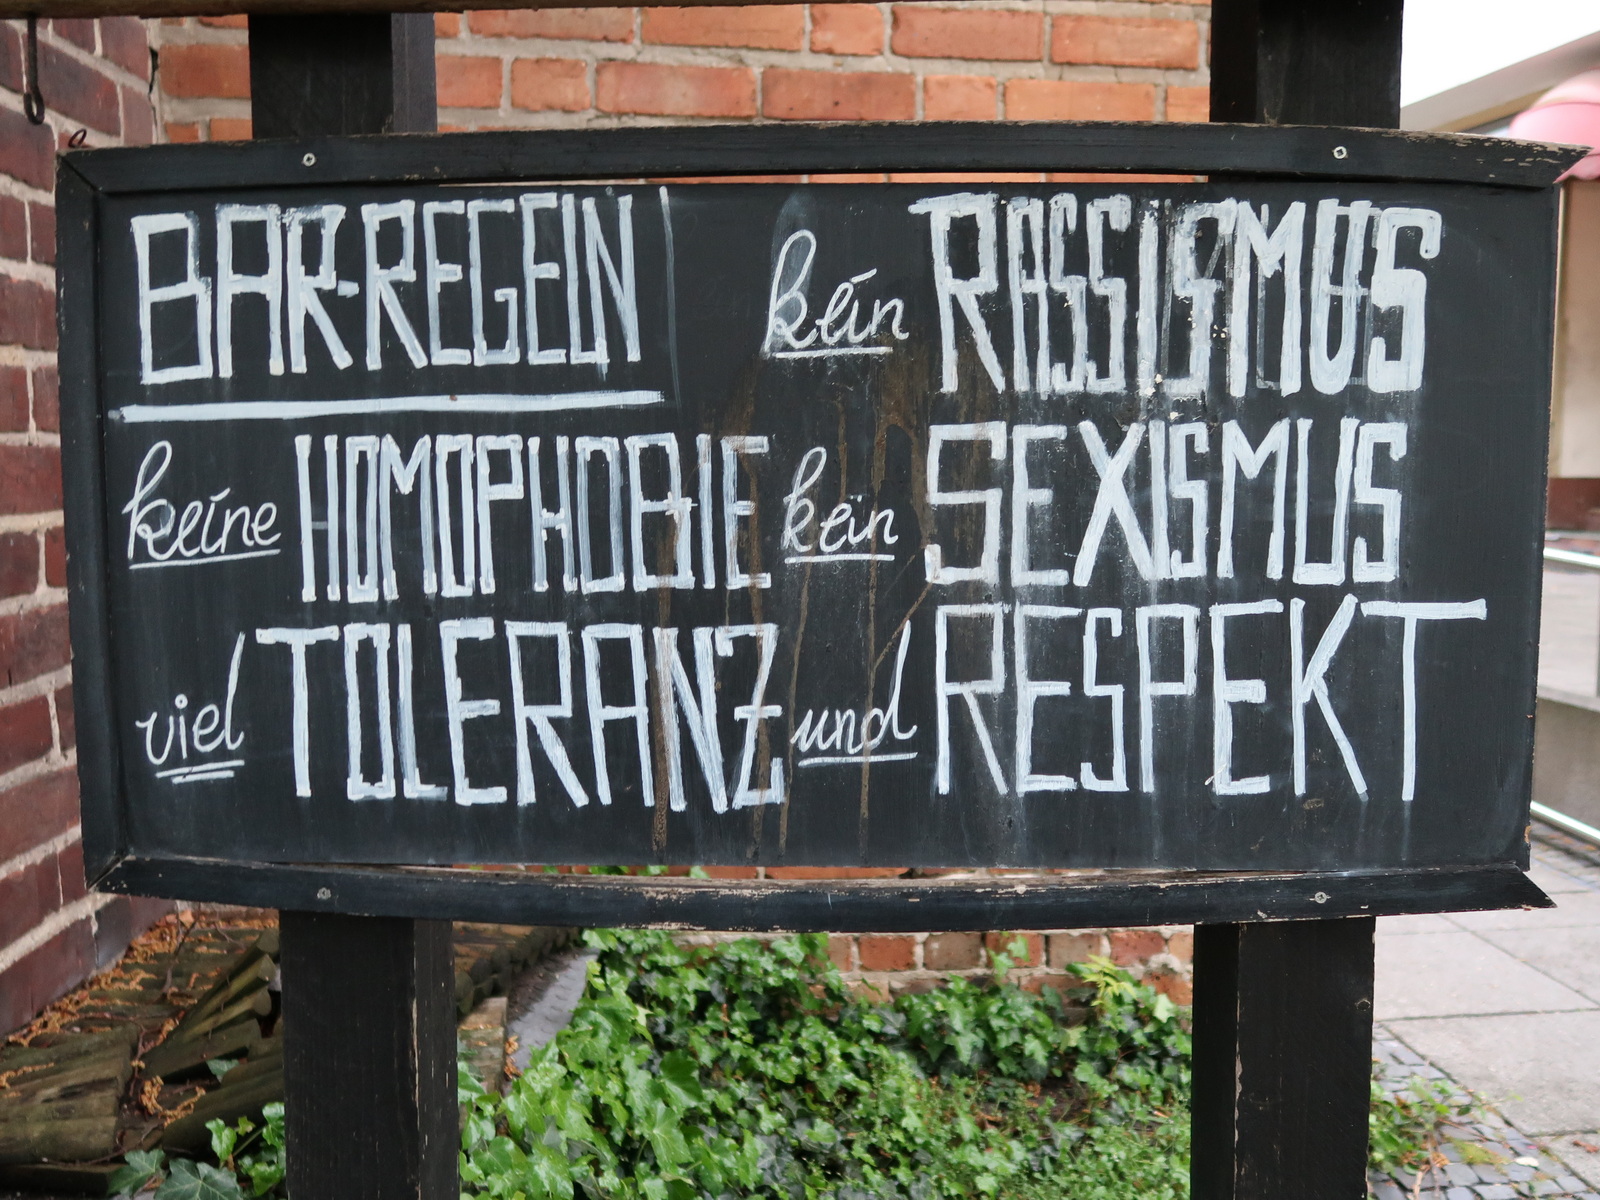 BAR-REGELN kein RASSISMUS
keine HOMOPHOBIE kein SEXISMUS
viel TOLERANZ und RESPEKT